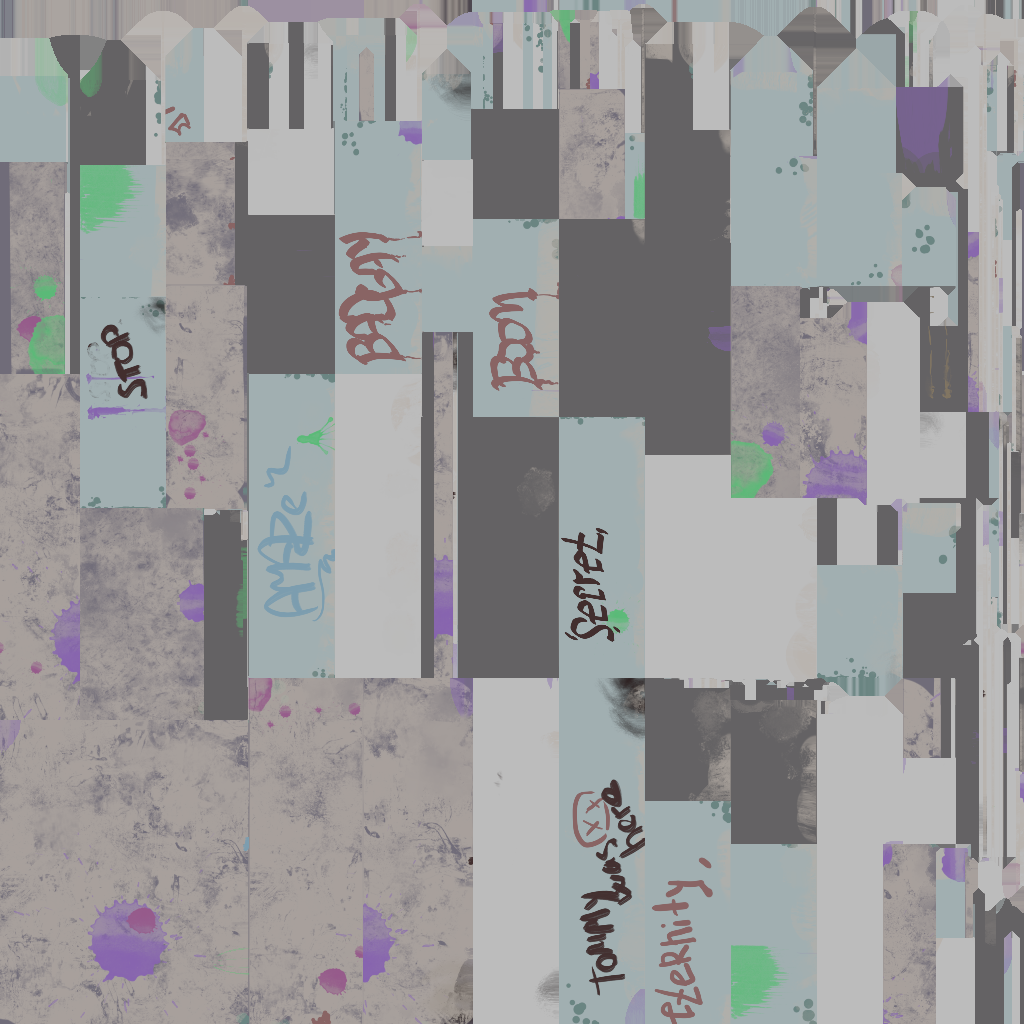 STOP
AMAZE
Secret,
Tommy was
here
EtERNity.